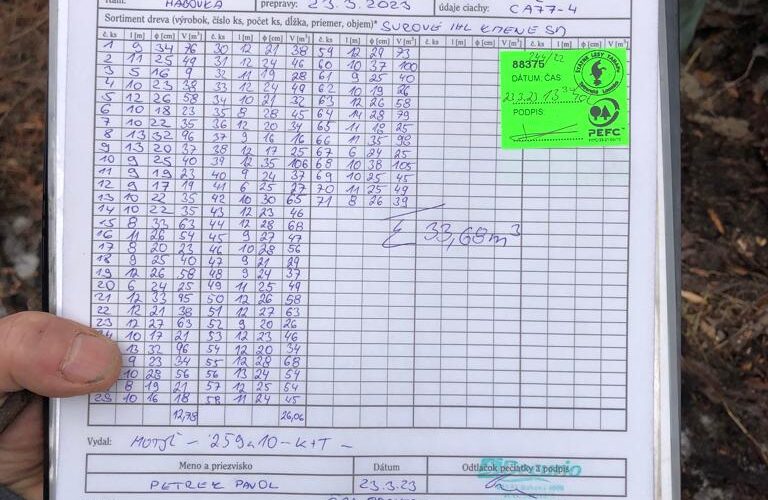 HABOVKA prepravy: 23.3.2023 údaje ciachy: CA77-4
Sortiment dreva (výrobok, číslo ks, počet ks, dĺžka, priemer, objem)* SUROVÉ IHL KMENE SM
č. ks l [m] ϕ [cm] V [m³] č. ks l [m] ϕ [cm] V [m³] č. ks l [m] ϕ [cm] V [m³] č. ks l [m] ϕ [cm] V [m³] č. ks l [m] ϕ [cm] V [m³]
1 9 34 76 30 12 21 38 59 12 29 73
2 11 25 49 31 12 24 46 60 10 37 100
3 5 16 9 32 11 19 28 61 9 25 40
4 10 23 38 33 12 24 49 62 10 19 26
5 12 26 58 34 10 21 32 63 12 26 58
6 10 18 23 35 8 28 45 64 11 28 79
7 10 22 35 36 12 20 34 65 11 18 25
8 13 32 96 37 9 16 16 66 11 35 98
9 13 20 37 38 12 17 25 67 6 24 25
10 9 25 40 39 12 35 106 68 10 38 105
11 9 19 23 40 9 24 37 69 10 25 45
12 9 17 19 41 6 25 27 70 11 25 49
13 10 22 35 42 10 30 65 71 8 26 39
14 10 22 35 43 12 23 46
15 8 33 63 44 12 28 68
16 11 26 54 45 9 27 47
17 8 20 23 46 10 28 56
18 9 25 40 47 9 21 29
19 12 26 58 48 9 24 37
20 6 24 25 49 11 25 49
21 12 33 95 50 12 26 58
22 12 21 38 51 12 27 63
23 12 27 63 52 9 20 26
10 17 21 53 12 23 46
13 32 96 54 12 20 34
9 23 34 55 12 28 68
10 28 56 56 13 24 54
8 19 21 57 12 25 54
10 16 18 58 11 24 45
12,78 26,06
Σ 33,68 m³
88375 244/22
DÁTUM, ČAS
23.3.23 13
PODPIS
PEFC
Vydal: MOTÝĽ - 259a10 - K+T -
Meno a priezvisko Dátum Odtlačok pečiatky a podpis
PETREK PAVOL 23.3.23